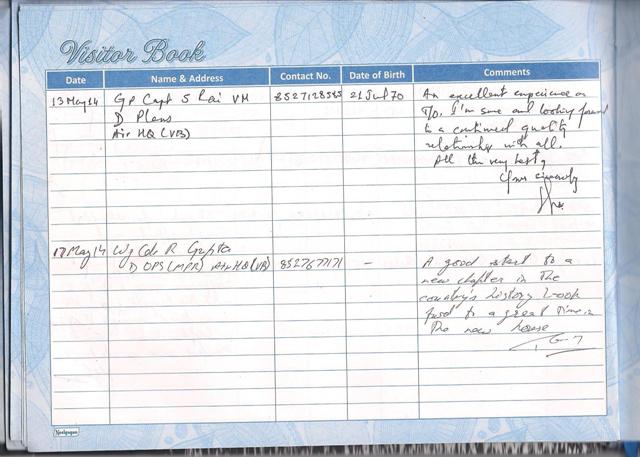 Visitor Book
Date Name & Address Contact No. Date of Birth Comments
13 May 14 Gp Capt S Rai VM 8527128585 21 Jul 70 An excellent experience as
D Plans I'm sure and looking forward
Air HQ (VB) to a continued quality
relationship with all.
All the very best,
Yours sincerely
17 May 14 Wg Cdr R Gupta
D OPS (MPR) Air HQ (VB) 8527677171 – A good start to a
new chapter in the
country's history Look
fwd to a great time in
the new house
Neelgagan